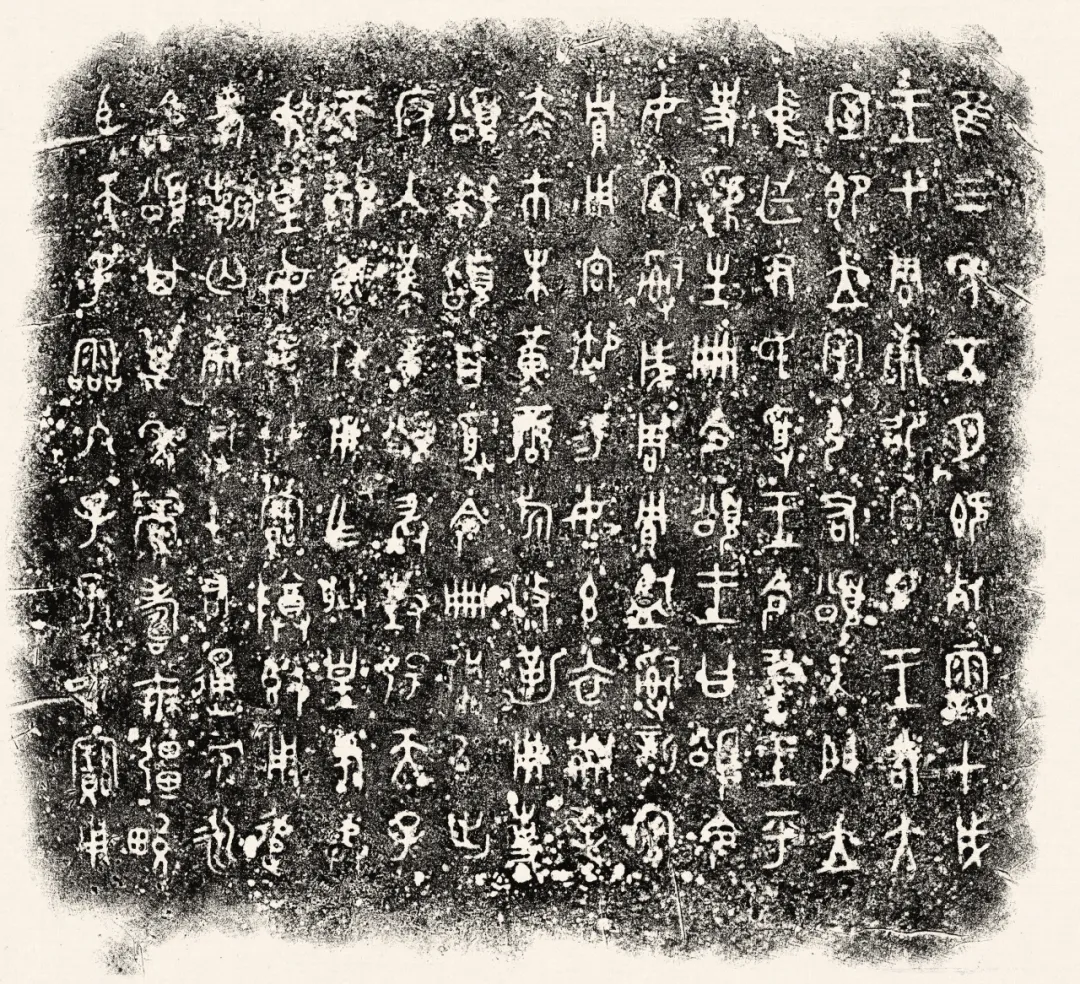 隹三年五月既死霸甲戌
王才周康卲宮旦王各大
室即立宰弘右頌入門立
中廷尹氏受王令書王乎
史虢生冊令頌王曰頌令
女官𤔲成周賈監𤔲新寤
賈用宮御易女玄衣黹屯
赤巿朱黃䜌旂攸勒用事
頌拜𩒨首受令冊佩以出
反入堇章頌敢對揚天子
不顯魯休用乍朕皇考龏
弔皇母龏姒寶尊簋用追
孝𣄨匄康𩛥屯右通彔永
令頌其萬年眉壽無疆畯
臣天子霝冬子=孫=永寶用